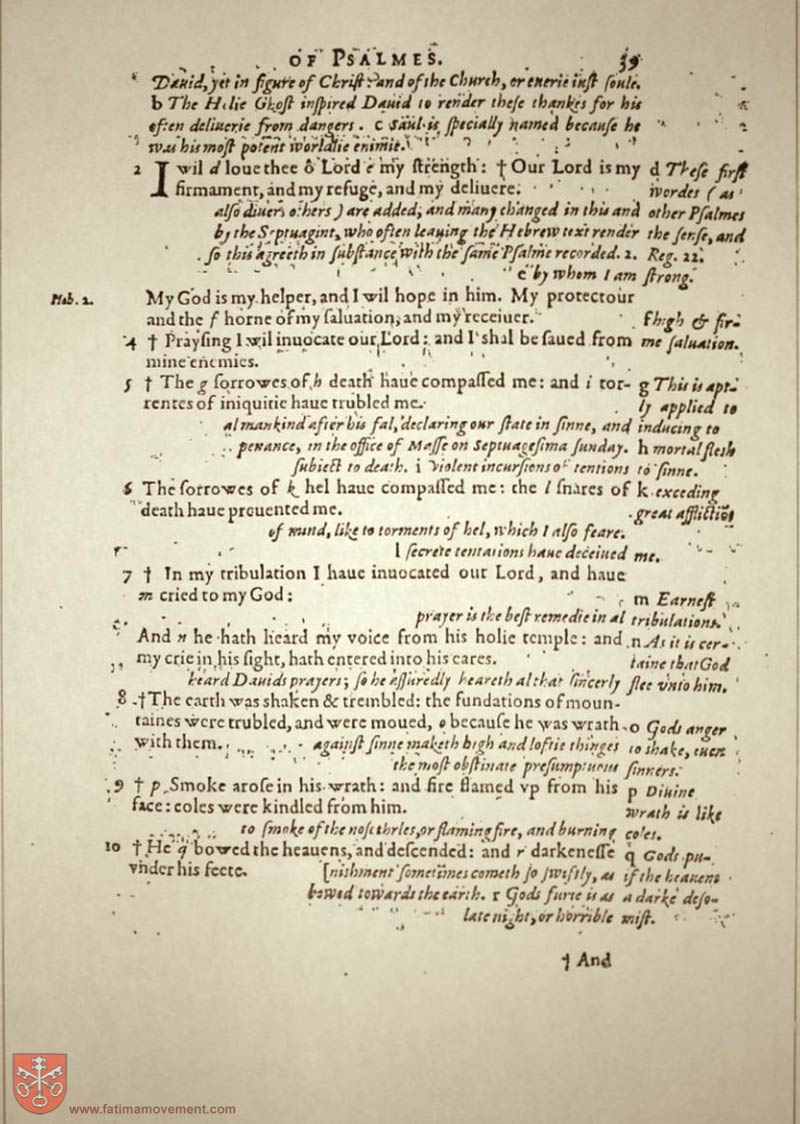 OF PSALMES. 39
Dauid, yet in figure of Christ: and of the Church, or euerie iust soule.
b The Holie Ghost inspired Dauid to render these thankes for his
often deliuerie from dangers. c Saul is specially named because he
was his most potent worldlie enimie.
2 I wil d loue thee ô Lord e my strength: † Our Lord is my d These first
firmament, and my refuge, and my deliuere. wordes (as
also diuers others) are added; and many changed in this and other Psalmes
by the Septuagint, who often leauing the Hebrew text render the sense, and
so this agreeth in substance with the same Psalme recorded. 2. Reg. 22.
e by whom I am strong.
Heb. 2. My God is my helper, and I wil hope in him. My protectour
and the f horne of my saluation, and my receiuer. f high & fir-
4 † Praysing I wil inuocate our Lord: and I shal be saued from me saluation.
mine enemies.
5 † The g sorrowes of h death haue compassed me: and i tor- g This is apt-
rentes of iniquitie haue trubled me. ly applied to
al mankind after his fal, declaring our state in sinne, and inducing to
penance, in the office of Masse on Septuagesima sunday. h mortal flesh
subiect to death. i violent incursions of tentions to sinne.
6 The sorrowes of k hel haue compassed me: the l snares of k exceding
death haue preuented me. great affliction
of mind, like to torments of hel, which I also feare.
l secrete tentations haue deceiued me.
7 † In my tribulation I haue inuocated our Lord, and haue
m cried to my God: m Earnest
prayer is the best remedie in al tribulations.
And n he hath heard my voice from his holie temple: and n As it is cer-
my crie in his sight, hath entered into his eares. taine that God
heard Dauids prayers; so he assuredly heareth al that sincerly flee vnto him.
8 † The earth was shaken & trembled: the fundations of moun-
taines were trubled, and were moued, o because he was wrath o Gods anger
with them. against sinne maketh high and loftie thinges to shake, euen
the most obstinate presumptuous sinners.
9 † p Smoke arose in his wrath: and fire flamed vp from his p Diuine
face: coles were kindled from him. wrath is like
to smoke of the nosethrles, or flaming fire, and burning coles.
10 † He q bowed the heauens, and descended: and r darkenesse q Gods pu-
vnder his feete. [nishment sometimes cometh so swiftly, as if the heauens
bowed towards the earth. r Gods furie is as a darke deso-
late night, or horrible mist.
† And
www.fatimamovement.com